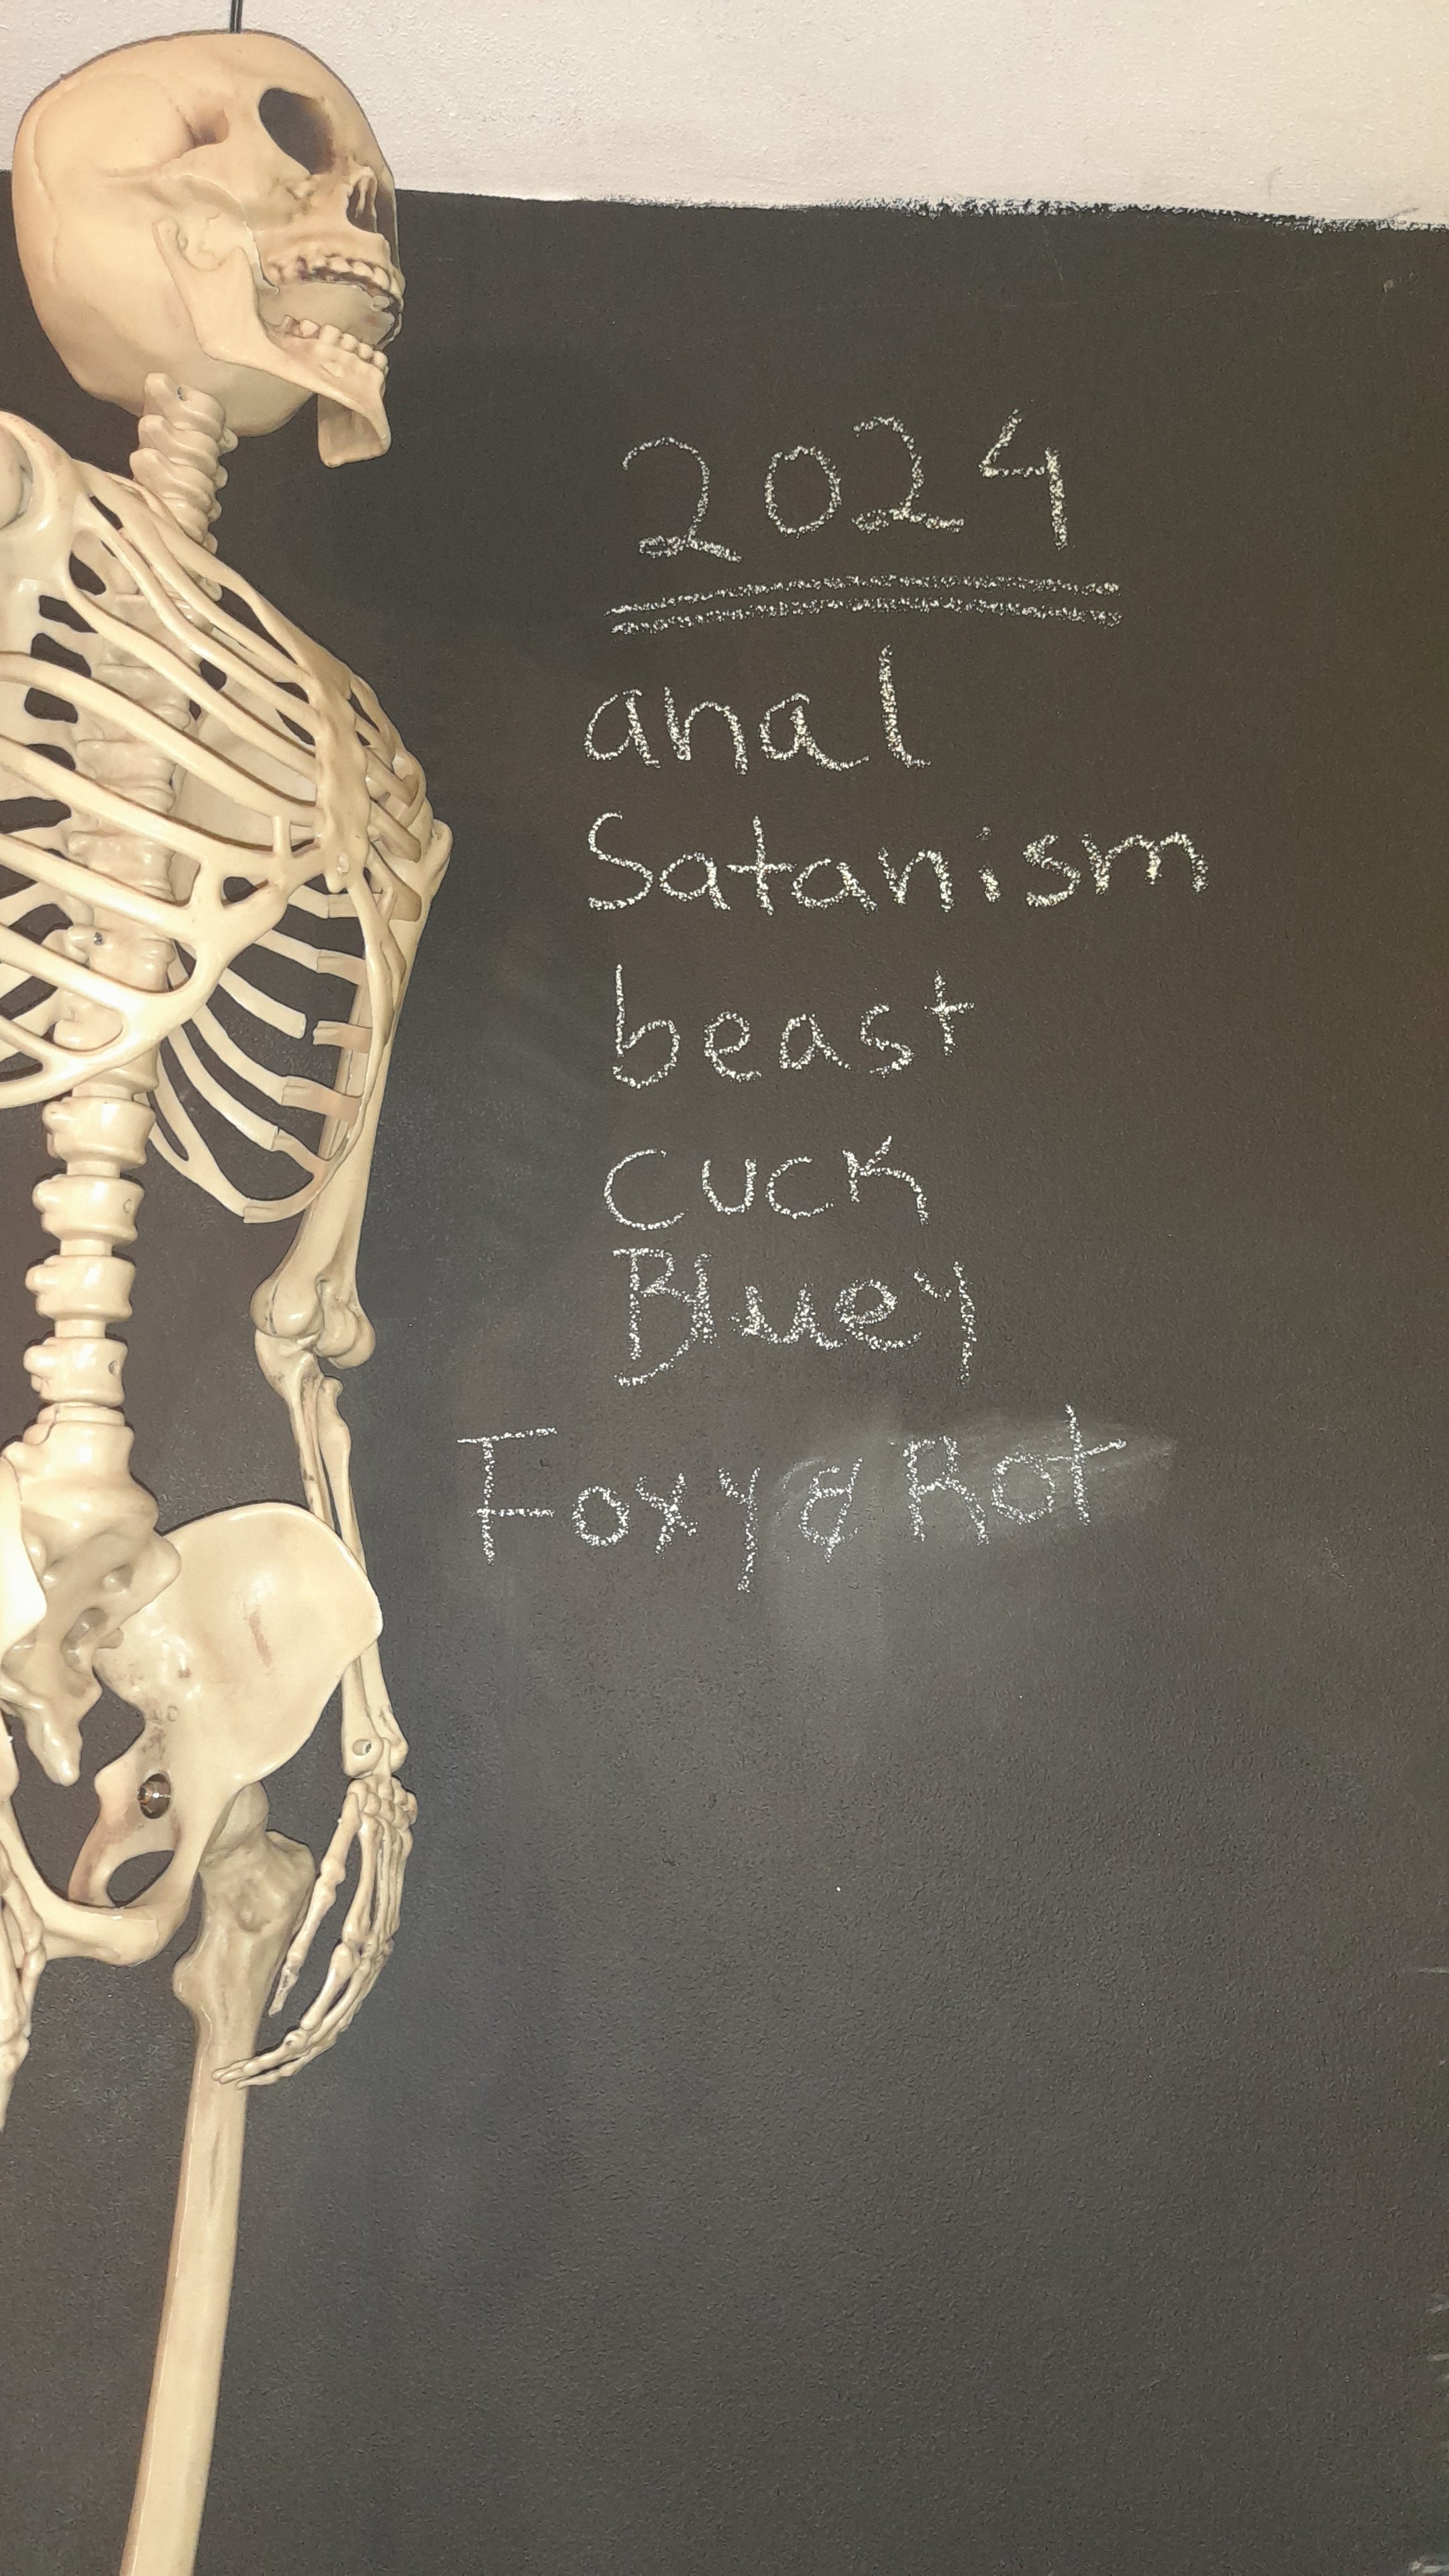 2024
anal
Satanism
beast
cuck
Bluey
Foxy & Rot